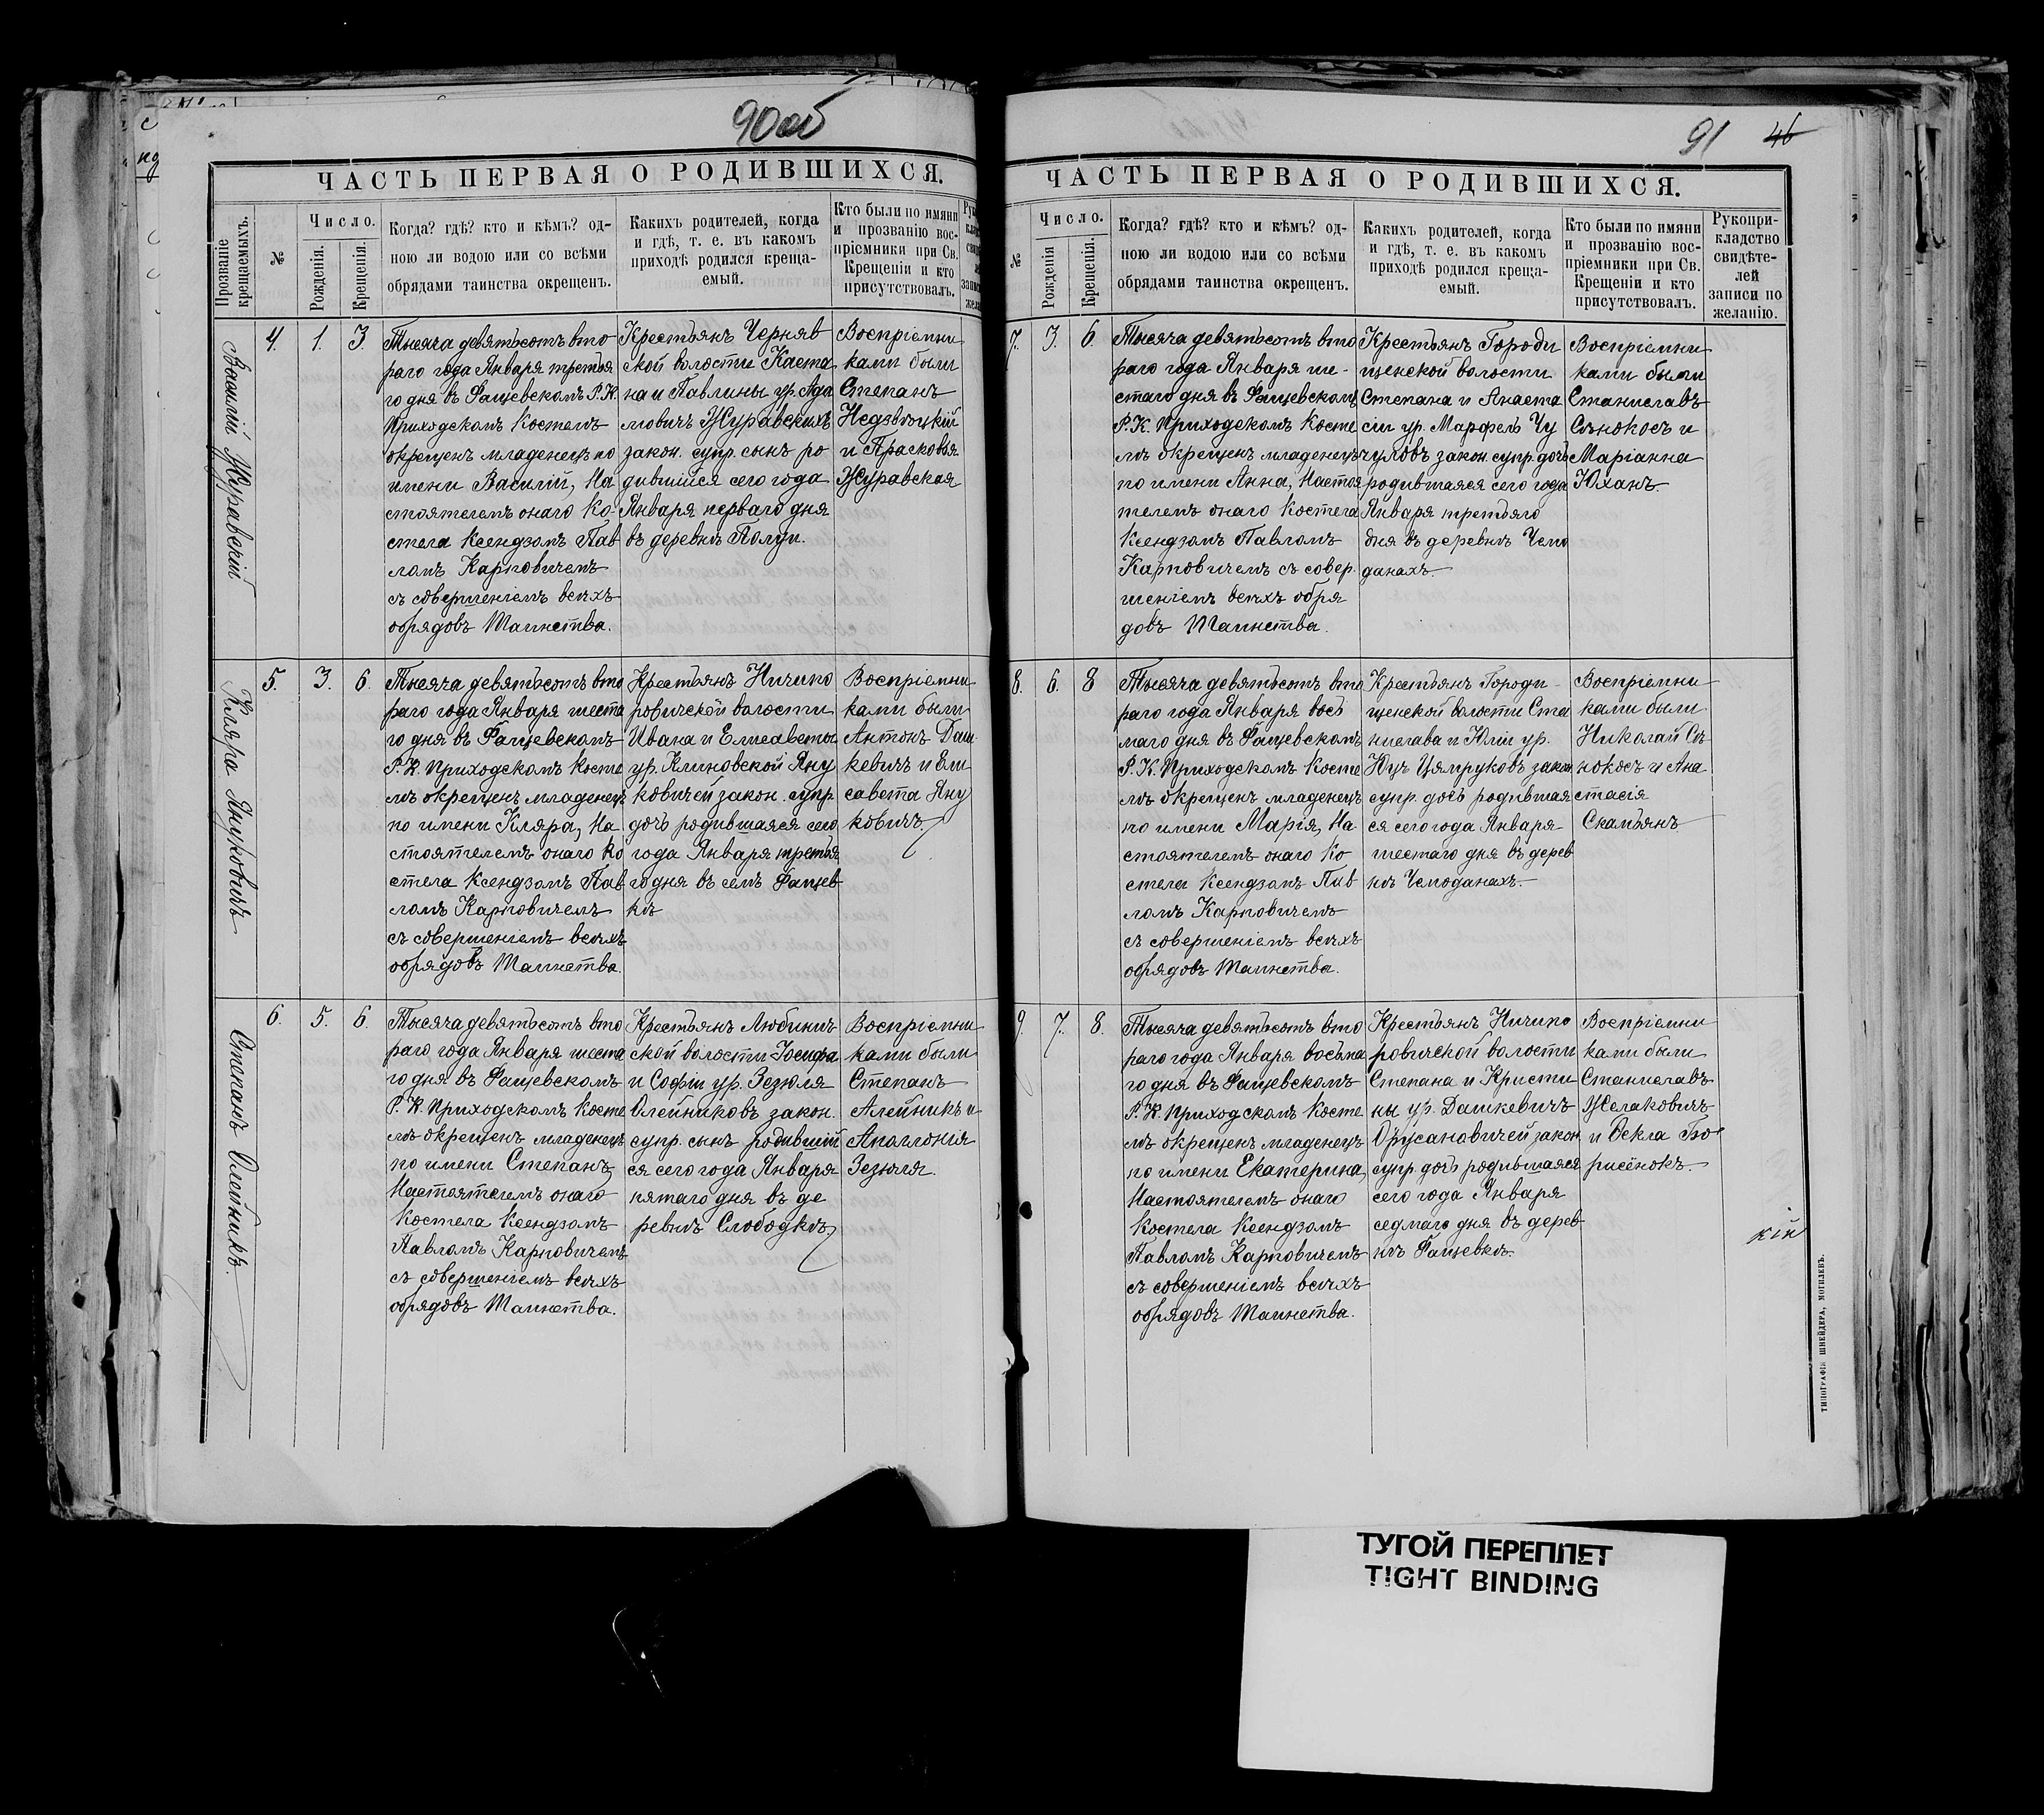 90 об
ЧАСТЬ ПЕРВАЯ О РОДИВШИХСЯ.
Прозваніе крещаемыхъ.
№
Число.
Рожденія.
Крещенія.
Когда? гдѣ? кто и кѣмъ? од-
ною ли водою или со всѣми
обрядами таинства окрещенъ.
Какихъ родителей, когда
и гдѣ, т. е. въ какомъ
приходѣ родился креща-
емый.
Кто были по имяни
и прозванію вос-
пріемники при Св.
Крещеніи и кто
присутствовалъ.
Василій Журавскій
4.
1.
3.
Тысяча девятьсотъ вто
раго года Января третья
го дня въ Фащевскомъ Р. К.
Приходскомъ Костелѣ
окрещенъ младенецъ по
имени Василій, На
стоятелемъ онаго Ко-
стела Ксендзомъ Пав
ломъ Карповичемъ
съ совершеніемъ всѣхъ
обрядовъ Таинства.
Крестьянъ Черняв
ской волости Каета
на и Павлины ур. Ада
мовичъ Журавскихъ
закон. супр. сынъ ро
дившійся сего года
Января перваго дня
въ деревнѣ Палуи.
Воспріемни
ками были
Степанъ
Недзвѣцкій
и Прасковья
Журавская
Кляра Януковичъ
5.
3.
6.
Тысяча девятьсотъ вто
раго года Января шеста
го дня въ Фащевскомъ
Р. К. Приходскомъ Косте
лѣ окрещенъ младенецъ
по имени Кляра, На
стоятелемъ онаго Ко
стела Ксендзомъ Пав
ломъ Карповичемъ
съ совершеніемъ всѣхъ
обрядовъ Таинства.
Крестьянъ Ничипо
ровичской волости
Ивана и Елисаветы
ур. Климовской Яну
ковичей закон. супр.
дочь родившаяся сего
года Января третья
го дня въ селѣ Фащев
кѣ
Воспріемни
ками были
Антонъ Даш
кевичъ и Ели
савета Яну
ковичъ.
Степанъ Олейникъ.
6.
5.
6.
Тысяча девятьсотъ вто
раго года Января шеста
го дня въ Фащевскомъ
Р. К. Приходскомъ Косте
лѣ окрещенъ младенецъ
по имени Степанъ,
Настоятелемъ онаго
Костела Ксендзомъ
Павломъ Карповичемъ
съ совершеніемъ всѣхъ
обрядовъ Таинства.
Крестьянъ Любинич
ской волости Іосифа
и Софіи ур. Зезюля
Олейниковъ закон.
супр. сынъ родившій
ся сего года Января
пятаго дня въ де
ревнѣ Слободкѣ.
Воспріемни
ками были
Степанъ
Алейникъ и
Аполлонія
Зезюля.
91 46
ЧАСТЬ ПЕРВАЯ О РОДИВШИХСЯ.
№
Число.
Рожденія
Крещенія.
Когда? гдѣ? кто и кѣмъ? од-
ною ли водою или со всѣми
обрядами таинства окрещенъ.
Какихъ родителей, когда
и гдѣ, т. е. въ какомъ
приходѣ родился креща-
емый.
Кто были по имяни
и прозванію вос-
пріемники при Св.
Крещеніи и кто
присутствовалъ.
Рукопри-
кладство
свидѣте-
лей
записи по
желанію.
7.
3.
6
Тысяча девятьсотъ вто
раго года Января ше-
стаго дня въ Фащевскомъ
Р. К. Приходскомъ Косте
лѣ окрещенъ младенецъ
по имени Анна, Настоя
телемъ онаго Костела
Ксендзомъ Павломъ
Карповичемъ съ совер-
шеніемъ всѣхъ обря
довъ Таинства.
Крестьянъ Городи
щенской волости
Степана и Анаста
сіи ур. Марфель Чу
чуловъ закон. супр. дочь
родившаяся сего года
Января третьяго
дня въ деревнѣ Чемо
данахъ.
Воспріемни
ками были
Станиславъ
Сѣнокосъ и
Маріанна
Юханъ.
8.
6.
8
Тысяча девятьсотъ вто
раго года Января вось
маго дня въ Фащевскомъ
Р. К. Приходскомъ Косте
лѣ окрещенъ младенецъ
по имени Марія, На
стоятелемъ онаго Ко
стела Ксендзомъ Пав
ломъ Карповичемъ
съ совершеніемъ всѣхъ
обрядовъ Таинства.
Крестьянъ Городи-
щенской волости Ста
нислава и Юліи ур.
Юцъ Цямруковъ закон.
супр. дочь родившая
ся сего года Января
шестаго дня въ дерев
нѣ Чемоданахъ.
Воспріемни
ками были
Николай Сѣ
нокосъ и Ана
стасія
Скамьянъ
9.
7.
8.
Тысяча девятьсотъ вто
раго года Января восьма
го дня въ Фащевскомъ
Р. К. Приходскомъ Косте
лѣ окрещенъ младенецъ
по имени Екатерина,
Настоятелемъ онаго
Костела Ксендзомъ
Павломъ Карповичемъ
съ совершеніемъ всѣхъ
обрядовъ Таинства.
Крестьянъ Ничипо
ровичской волости
Степана и Кристи
ны ур. Дашкевичъ
Орусановичей закон.
супр. дочь родившаяся
сего года Января
седмаго дня въ дерев
нѣ Фащевкѣ.
Воспріемни
ками были
Станиславъ
Желаковичъ
и Ѳекла Бо
рисёнокъ.
кій
ТИПОГРАФІЯ ШНЕЙДЕРА, МОГИЛЕВЪ.
ТУГОЙ ПЕРЕПЛЕТ
TIGHT BINDING